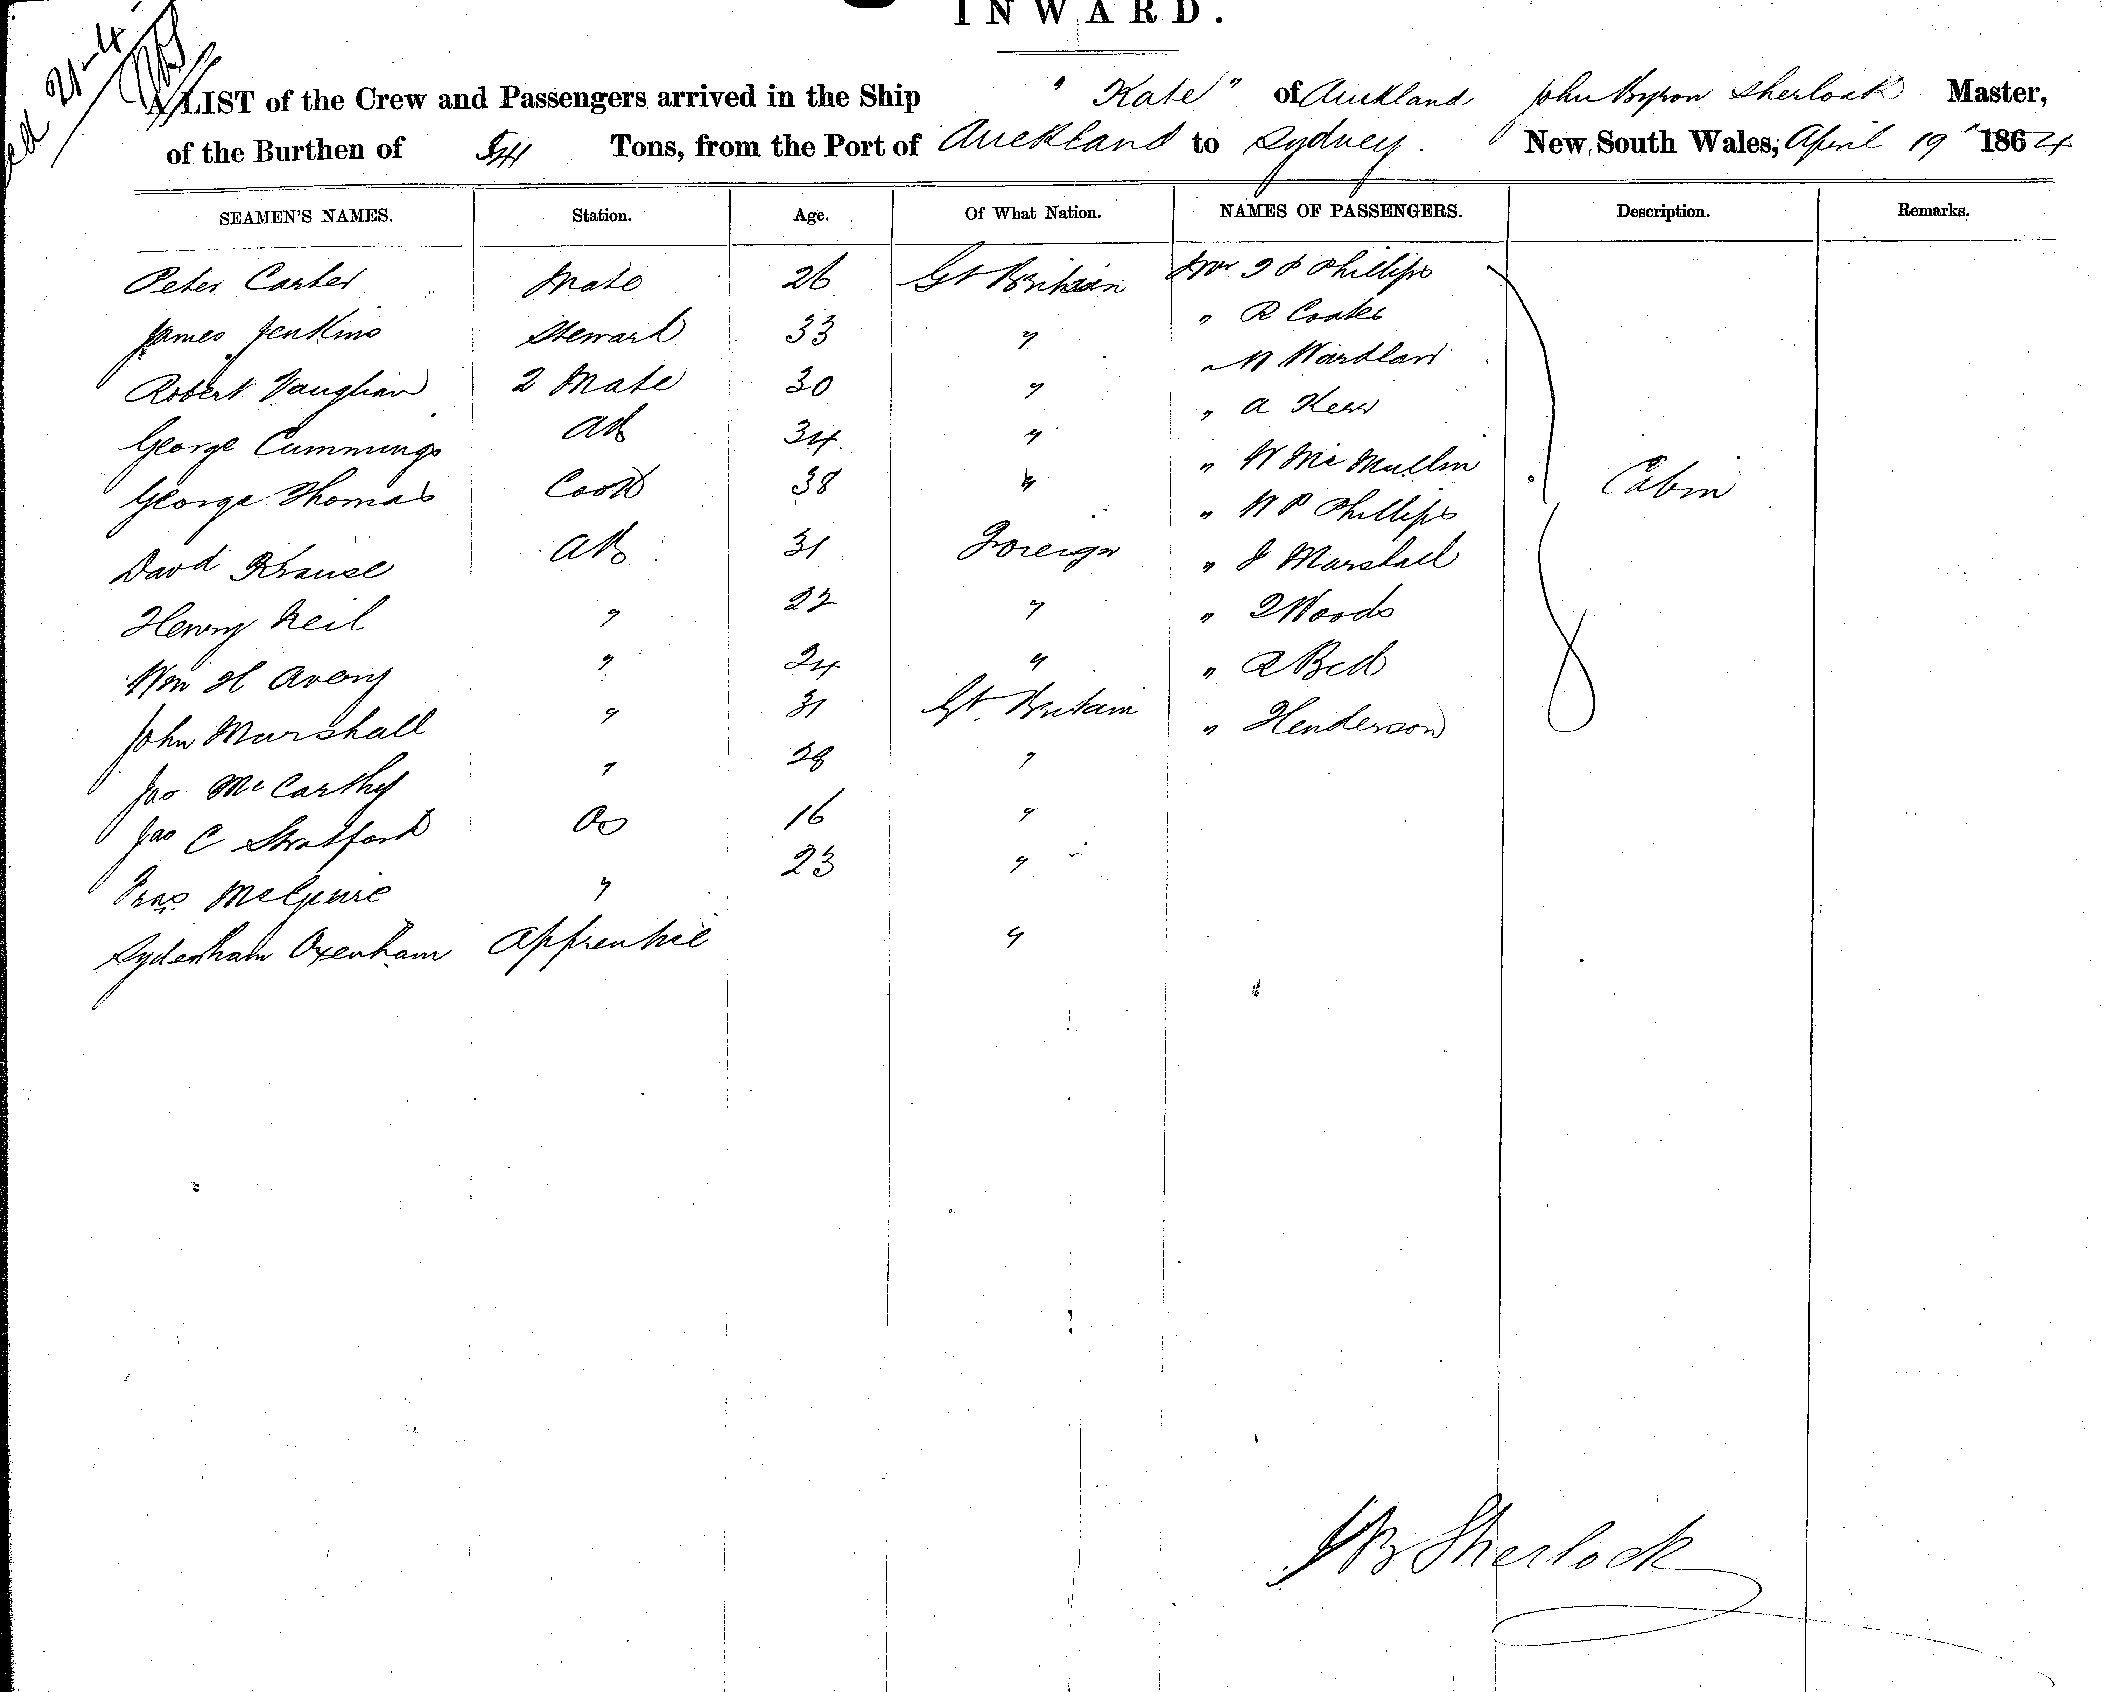 INWARD.
21-4
A LIST of the Crew and Passengers arrived in the Ship "Kate" of Auckland John Byron Sherlock Master,
of the Burthen of Tons, from the Port of Auckland to Sydney. New South Wales, April 19 " 1864
SEAMEN'S NAMES. Station. Age. Of What Nation. NAMES OF PASSENGERS. Description. Remarks.
Peter Carter Mate 26 Gt Britain Phillips
James Jenkins Steward 33 " " R Coates
Robert Vaughan 2 Mate 30 " " W Wardlaw
George Cummings AB 34 " " A Kerr
George Thomas Cook 38 " " W McMullin Cabin
David Krause AB 31 Foreign " W P Phillips
Henry Neil " 22 " " J Marshall
Wm H Avery " 24 " " Woods
John Marshall " 31 Gt Britain " Bell
Jas McCarthy " 28 " " Henderson
Jas C Stratford Os 16 "
McGuire " 23 "
Sydenham Oxenham Apprentice "
J B Sherlock